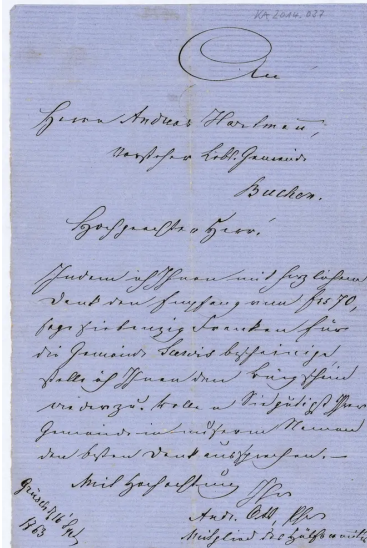 KA 2014.027
An
Herrn Andreas Hartmann,
Vorsteher Löbl. Gemeinde
Buchen.
Hochgeachteter Herr!
Indem ich Ihnen mit herzlichem
Dank den Empfang von frs 70,
sage siebenzig Franken für
die Gemeinde Seewis bescheinige
stelle ich Ihnen den
wieder zu. Wollen Sie gütigst Ihrer
Gemeinde in unserem Namen
den besten Dank aussprechen. –
Mit Hochachtung Ihr
Andr. Ott, Pfr
Mitglied des Hülfscomités
Grüsch, d. 16
1863